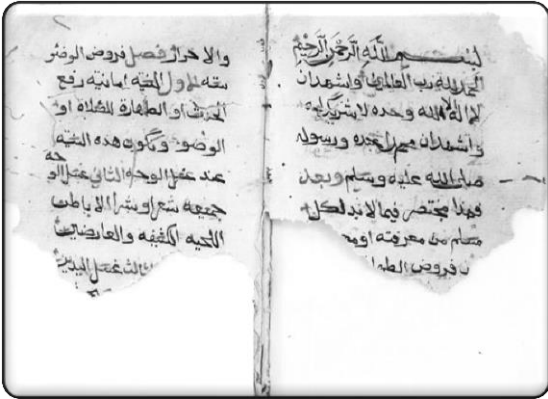 بسم الله الرحمن الرحيم
الحمد لله رب العالمين واشهد ان
لا اله الا الله وحده لا شريك له
واشهد ان محمدا عبده ورسوله
صلى الله عليه وسلم وبعد
فهذا مختصر فيما لا بد لكل
مسلم من معرفته او
فروض
فصل فروض الوضو
سته الاول النيه رفع
الحدث او الطهارة للصلاة او
الوضو وتكون هذه النيه
عند غسل الوجه الثاني غسل الوجه
جميعه شعرا وبشرا الا باطن
اللحيه الكثيفه والعارضين
غسل اليدين